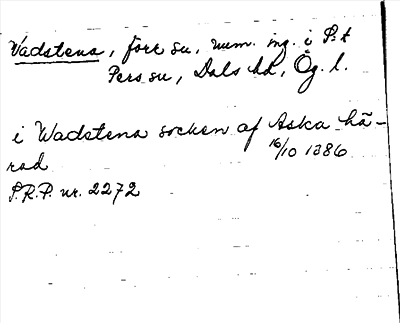 Vadstena, förr sn, num. ing. i S:t
Pers sn, Dals hd, Ög. l.
i Wadstena socken af Aska hä-
rad 16/10 1386
S.R.P. nr. 2272